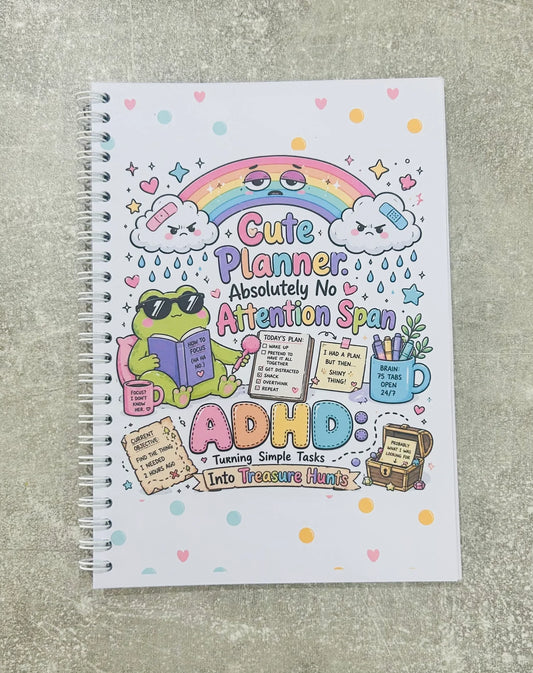 Cute
Planner.
Absolutely No
Attention Span
HOW TO
FOCUS
(HA HA
NO.)
TODAY'S PLAN:
WAKE UP
PRETEND TO
HAVE IT ALL
TOGETHER
GET DISTRACTED
SNACK
OVERTHINK
REPEAT
I HAD A PLAN.
BUT THEN...
SHINY
THING!
BRAIN:
75 TABS
OPEN
24/7
FOCUS?
I DON'T
KNOW
HER.
ADHD:
Turning Simple Tasks
Into Treasure Hunts
CURRENT
OBJECTIVE:
FIND THE THING
I NEEDED
2 HOURS AGO
PROBABLY
WHAT I WAS
LOOKING FOR